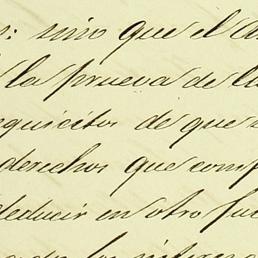 : sino que el
la prueva de la
equisitos de que
derechos que comp
deducir en otro fue